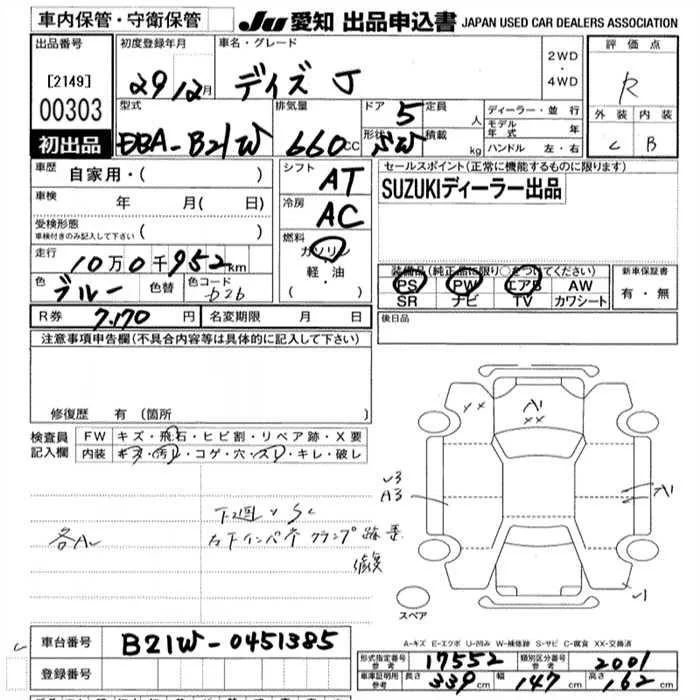 車内保管・守衛保管
JU 愛知 出品申込書 JAPAN USED CAR DEALERS ASSOCIATION
出品番号
[2149]
00303
初出品
初度登録年月
29 12月
車名・グレード
デイズ J
2WD
・
4WD
評価点
R
外装 内装
C B
型式
DBA-B21W
排気量
660cc
ドア 5
形状 SW
定員 人
積載 kg
ディーラー・並行
モデル年式 年
ハンドル 左・右
車歴
自家用・( )
車検
年 月( 日)
受検形態
車検付きのみ記入して下さい ( )
走行
10万0千952km
色
ブルー
色替
色コード
シフト
AT
冷房
AC
燃料
ガソリン
軽・油
・( )
セールスポイント(正常に機能するものに限ります)
SUZUKIディーラー出品
装備品(純正品に限り○をつけてください)
PS PW エアB AW
SR ナビ TV カワシート
新車保証書
有・無
R券 7,170 円
名変期限 月 日
後日品
注意事項申告欄(不具合内容等は具体的に記入して下さい)
修復歴 有(箇所
検査員記入欄
FW キズ・飛石・ヒビ割・リペア跡・X要
内装 キズ・汚レ・コゲ・穴・スレ・キレ・破レ
各A
下廻り S C
右下インパネ クランプ跡
修復
XX
A1
XX
A3
A1
スペア
A-キズ E-エクボ U-凹み W-補修跡 S-サビ C-腐食 XX-交換済
車台番号 B21W-0451385
登録番号
形式指定番号 参考 17552
類別区分番号 参考 2001
車庫証明用 参考 長さ 339cm 幅 147cm 高さ 162cm